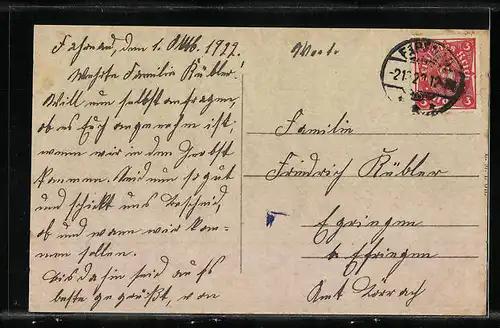 Fahrnau, den 1. Oktb. 1922.
Werthe Familie Kübler!
Will nun selbst anfragen,
ob es Euch angenehm ist,
wenn wir in den Herbst
kommen. Seid nun so gut
und schickt uns Bescheid,
ob und wann wir kom-
men sollen.
Bis dahin seid aufs
beste gegrüßt, von
Familie
Friedrich Kübler
Egringen
b Efringen
Amt Lörrach
3
3
3